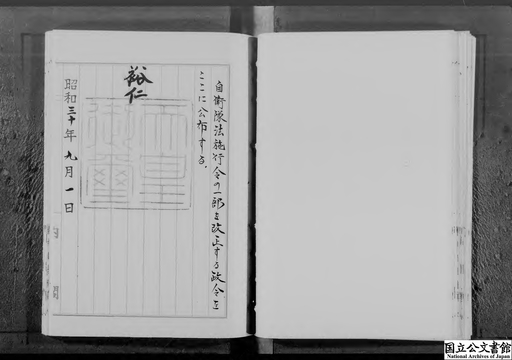 自衛隊法施行令の一部を改正する政令を
ここに公布する。
裕仁
天皇
御璽
昭和三十年九月一日
国立公文書館
National Archives of Japan